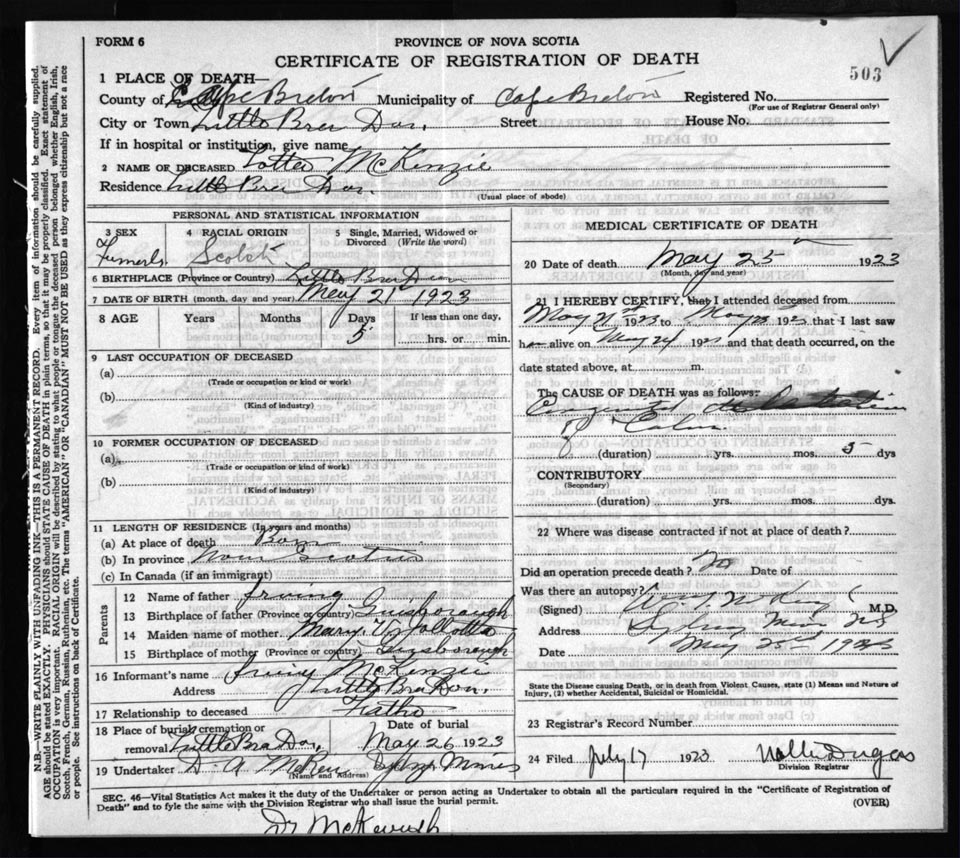 FORM 6
PROVINCE OF NOVA SCOTIA
CERTIFICATE OF REGISTRATION OF DEATH
503
1 PLACE OF DEATH—
County of Cape Breton Municipality of Cape Breton Registered No.
(For use of Registrar General only)
City or Town Little Bras Dor. Street House No.
If in hospital or institution, give name
2 NAME OF DECEASED McKenzie
Residence Little Bras Dor.
(Usual place of abode)
PERSONAL AND STATISTICAL INFORMATION
3 SEX 4 RACIAL ORIGIN 5 Single, Married, Widowed or Divorced (Write the word)
Scotch
6 BIRTHPLACE (Province or Country) Little Bras Dor
7 DATE OF BIRTH (month, day and year) May 21 1923
8 AGE Years Months Days If less than one day,
5 hrs. or min.
9 LAST OCCUPATION OF DECEASED
(a)
(Trade or occupation or kind or work)
(b)
(Kind of industry)
10 FORMER OCCUPATION OF DECEASED
(a)
(Trade or occupation or kind or work)
(b)
(Kind of industry)
11 LENGTH OF RESIDENCE (In years and months)
(a) At place of death Born
(b) In province Nova Scotia
(c) In Canada (if an immigrant)
Parents
12 Name of father Irving
13 Birthplace of father (Province or country) Guysborough
14 Maiden name of mother Mary
15 Birthplace of mother (Province or country) Guysborough
16 Informant's name Irving McKenzie
Address Little Bras Dor.
17 Relationship to deceased Father
18 Place of burial, cremation or removal Little Bras Dor, Date of burial May 26 1923
19 Undertaker D. A. Sydney Mines
(Name and Address)
MEDICAL CERTIFICATE OF DEATH
20 Date of death May 25 1923
(Month, day and year)
21 I HEREBY CERTIFY, that I attended deceased from
May 21 1923 to May 1923 that I last saw
h alive on May 24 192 and that death occurred, on the
date stated above, at m.
The CAUSE OF DEATH was as follows:
Congenital
of Colon
(duration) yrs. mos. 5 dys
CONTRIBUTORY
(Secondary)
(duration) yrs. mos. dys.
22 Where was disease contracted if not at place of death?
Did an operation precede death? No Date of
Was there an autopsy?
(Signed) M.D.
Address Sydney Mines N.S.
Date May 25 1923
State the Disease causing Death, or in death from Violent Causes, state (1) Means and Nature of Injury, (2) whether Accidental, Suicidal or Homicidal.
23 Registrar's Record Number
24 Filed July 17 1923
Division Registrar
SEC. 46—Vital Statistics Act makes it the duty of the Undertaker or person acting as Undertaker to obtain all the particulars required in the "Certificate of Registration of
Death" and to fyle the same with the Division Registrar who shall issue the burial permit. (OVER)
N.B.—WRITE PLAINLY WITH UNFADING INK—THIS IS A PERMANENT RECORD. Every item of information should be carefully supplied.
AGE should be stated EXACTLY. PHYSICIANS should STATE CAUSE OF DEATH in plain terms, so that it may be properly classified. Exact statement of
OCCUPATION is very important. RACIAL ORIGIN will be described by stating to what people or tongue the deceased person belonged whether English, Irish,
Scotch, French, German, Russian, Ruthenian, etc. The terms "AMERICAN" OR "CANADIAN" MUST NOT BE USED as they express citizenship but not a race
or people. See instructions on back of Certificate.